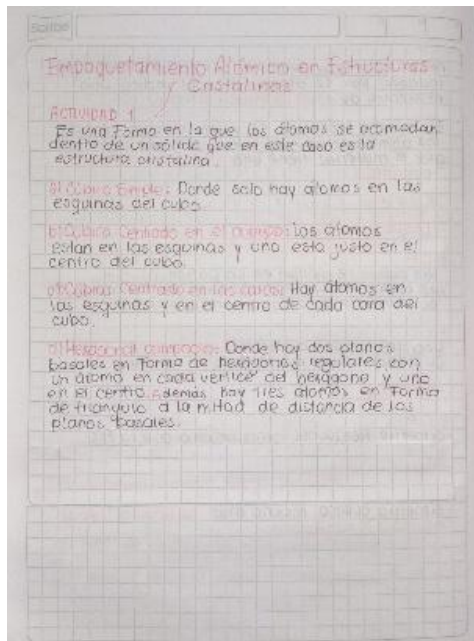 Scribe
Empaquetamiento Atómico en Estructuras
y Cristalinas
ACTIVIDAD 1
Es una Forma en la que los átomos se acomodan
dentro de un sólido que en este caso es la
estructura cristalina.
a) Cúbico Simple: Donde solo hay átomos en las
esquinas del cubo.
b) Cúbico Centrado en el cuerpo: los átomos
estan en las esquinas y uno esta justo en el
centro del cubo.
c) Cúbico Centrado en las caras: Hay átomos en
las esquinas y en el centro de cada cara del
cubo.
d) Hexagonal compacto: Donde hay dos planos
basales en Forma de hexágonos regulares con
un átomo en cada vertice del hexágono y uno
en el centro además hay tres átomos en Forma
de triangulo a la mitad de distancia de los
planos basales.